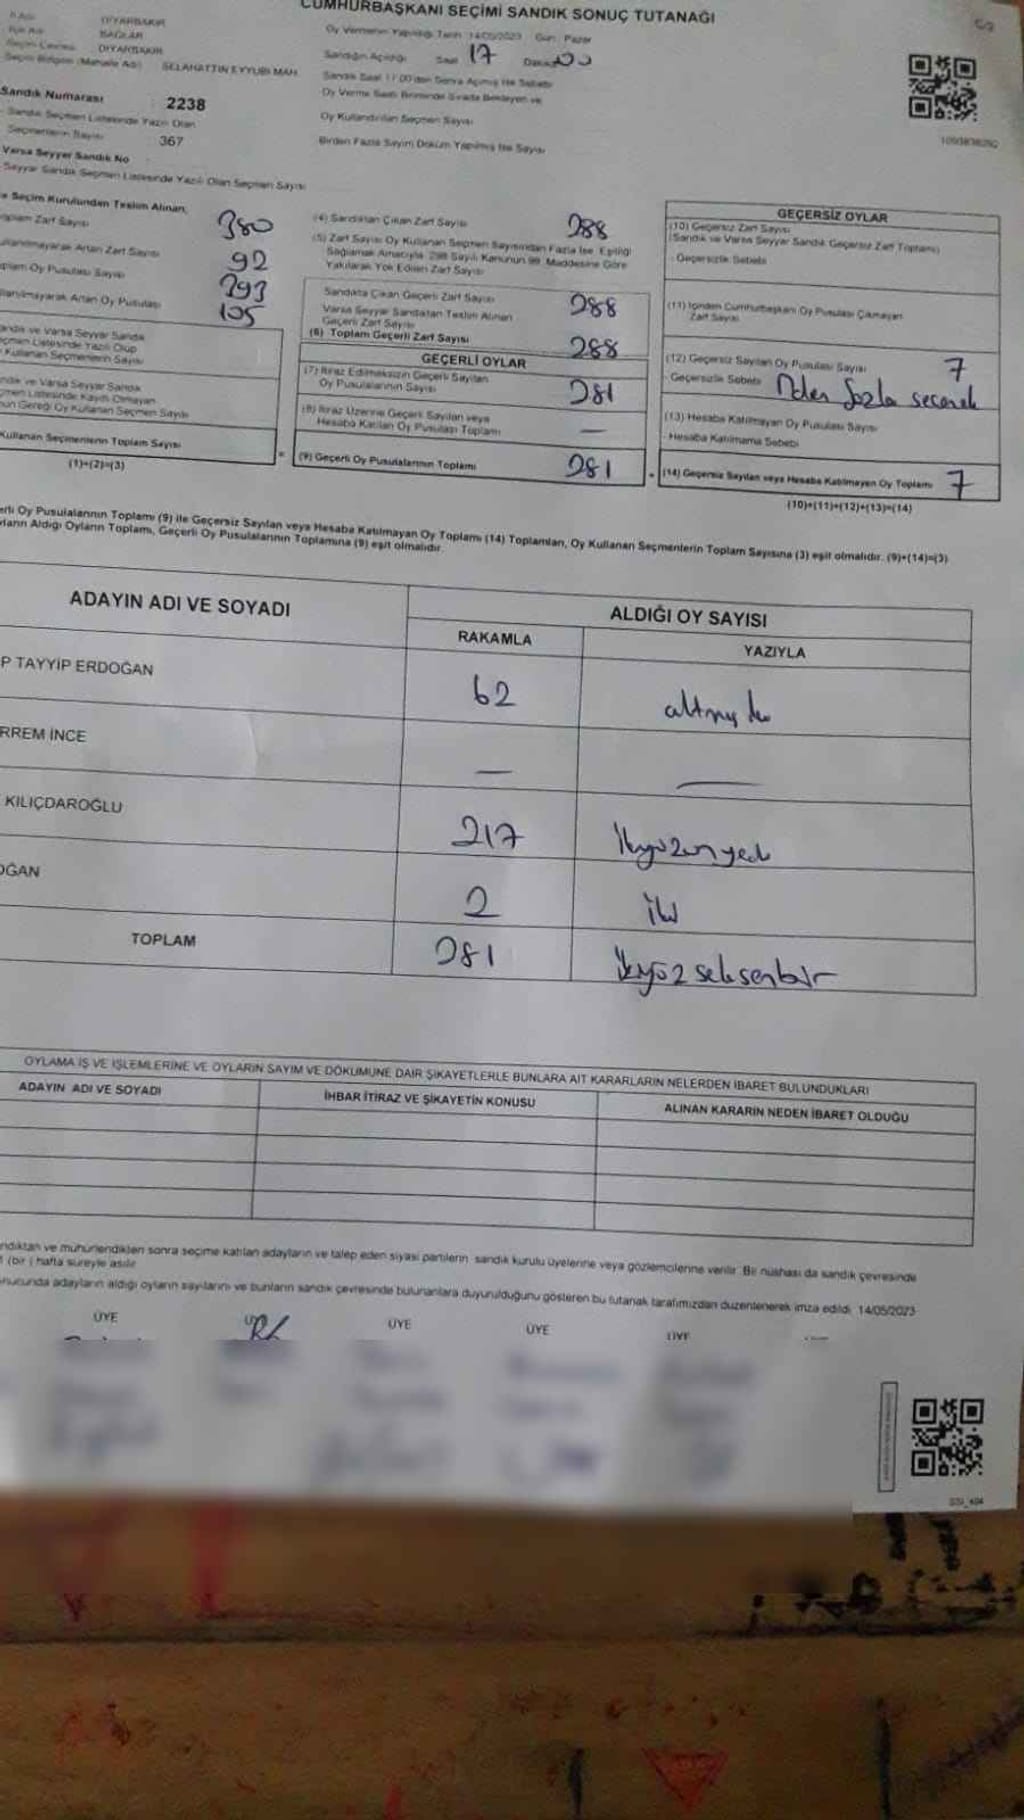 CUMHURBAŞKANI SEÇİMİ SANDIK SONUÇ TUTANAĞI
C/2
DİYARBAKIR
BAĞLAR
DİYARBAKIR
SELAHATTİN EYYUBİ MAH.
Oy Vermenin Yapıldığı Tarih 14/05/2023 Gün: Pazar
Sandığın Açıldığı Saat 17 Dakika 00
Oy Verme Saati Bitiminde Sırada Bekleyen ve
Oy Kullandırılan Seçmen Sayısı
Birden Fazla Sayım Döküm Yapılmış İse Sayısı
Sandık Numarası 2238
Sandık Seçmen Listesinde Yazılı Olan
Seçmenlerin Sayısı 367
Varsa Seyyar Sandık No
Seyyar Sandık Seçmen Listesinde Yazılı Olan Seçmen Sayısı
Seçim Kurulundan Teslim Alınan;
Zarf Sayısı 380
Artan Zarf Sayısı 92
Oy Pusulası Sayısı 393
Artan Oy Pusulası 105
ve Varsa Seyyar Sandık
Listesinde Yazılı Olup
Kullanan Seçmenlerin Sayısı
ve Varsa Seyyar Sandık
Listesinde Kayıtlı Olmayan
Gereği Oy Kullanan Seçmen Sayısı
Kullanan Seçmenlerin Toplam Sayısı
(1)+(2)=(3)
(4) Sandıktan Çıkan Zarf Sayısı 288
(5) Zarf Sayısı Oy Kullanan Seçmen Sayısından Fazla İse, Eşitliği
Sağlamak Amacıyla, 298 Sayılı Kanunun 98. Maddesine Göre
Yakılarak Yok Edilen Zarf Sayısı
Sandıkta Çıkan Geçerli Zarf Sayısı 288
Varsa Seyyar Sandıktan Teslim Alınan
Geçerli Zarf Sayısı
(6) Toplam Geçerli Zarf Sayısı 288
GEÇERLİ OYLAR
(7) İtiraz Edilmeksizin Geçerli Sayılan
Oy Pusulalarının Sayısı 281
(8) İtiraz Üzerine Geçerli Sayılan veya
Hesaba Katılan Oy Pusulası Toplamı —
(9) Geçerli Oy Pusulalarının Toplamı 281
GEÇERSİZ OYLAR
(10) Geçersiz Zarf Sayısı
(Sandık ve Varsa Seyyar Sandık Geçersiz Zarf Toplamı)
- Geçersizlik Sebebi
(11) İçinden Cumhurbaşkanı Oy Pusulası Çıkmayan
Zarf Sayısı
(12) Geçersiz Sayılan Oy Pusulası Sayısı 7
- Geçersizlik Sebebi fazla seçenek
(13) Hesaba Katılmayan Oy Pusulası Sayısı
- Hesaba Katılmama Sebebi
(14) Geçersiz Sayılan veya Hesaba Katılmayan Oy Toplamı 7
(10)+(11)+(12)+(13)=(14)
Oy Pusulalarının Toplamı (9) ile Geçersiz Sayılan veya Hesaba Katılmayan Oy Toplamı (14) Toplamları, Oy Kullanan Seçmenlerin Toplam Sayısına (3) eşit olmalıdır. (9)+(14)=(3)
Aldığı Oyların Toplamı, Geçerli Oy Pusulalarının Toplamına (9) eşit olmalıdır.
ADAYIN ADI VE SOYADI ALDIĞI OY SAYISI
RAKAMLA YAZIYLA
P TAYYİP ERDOĞAN 62 altmış iki
RREM İNCE — —
KILIÇDAROĞLU 217 İkiyüzonyedi
OĞAN 2 iki
TOPLAM 281 İkiyüz seksenbir
OYLAMA İŞ VE İŞLEMLERİNE VE OYLARIN SAYIM VE DÖKÜMÜNE DAİR ŞİKAYETLERLE BUNLARA AİT KARARLARIN NELERDEN İBARET BULUNDUKLARI
ADAYIN ADI VE SOYADI İHBAR İTİRAZ VE ŞİKAYETİN KONUSU ALINAN KARARIN NEDEN İBARET OLDUĞU
ve mühürlendikten sonra seçime katılan adayların ve talep eden siyasi partilerin sandık kurulu üyelerine veya gözlemcilerine verilir. Bir nüshası da sandık çevresinde
(bir) hafta süreyle asılır.
adayların aldığı oyların sayılarını ve bunların sandık çevresinde bulunanlara duyurulduğunu gösteren bu tutanak tarafımızdan düzenlenerek imza edildi. 14/05/2023
ÜYE ÜYE ÜYE ÜYE